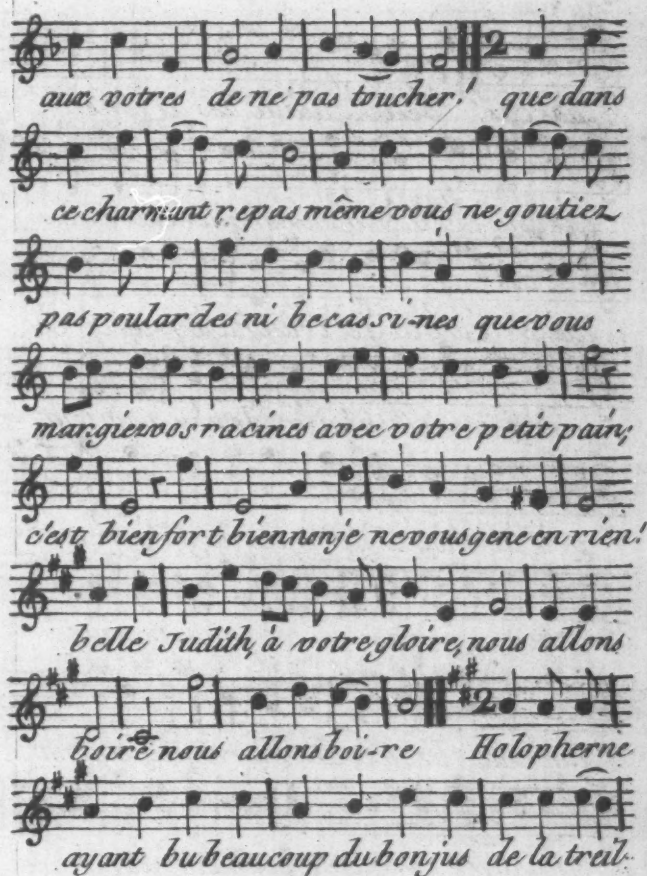 aux votres de ne pas toucher! que dans
ce charmant repas même vous ne goutiez
pas poulardes ni becassi-nes que vous
mangiez vos racines avec votre petit pain;
c'est bien fort bien non je ne vous gene en rien!
belle Judith, à votre gloire, nous allons
boire nous allons boi-re Holopherne
ayant bu beaucoup du bon jus de la treil-